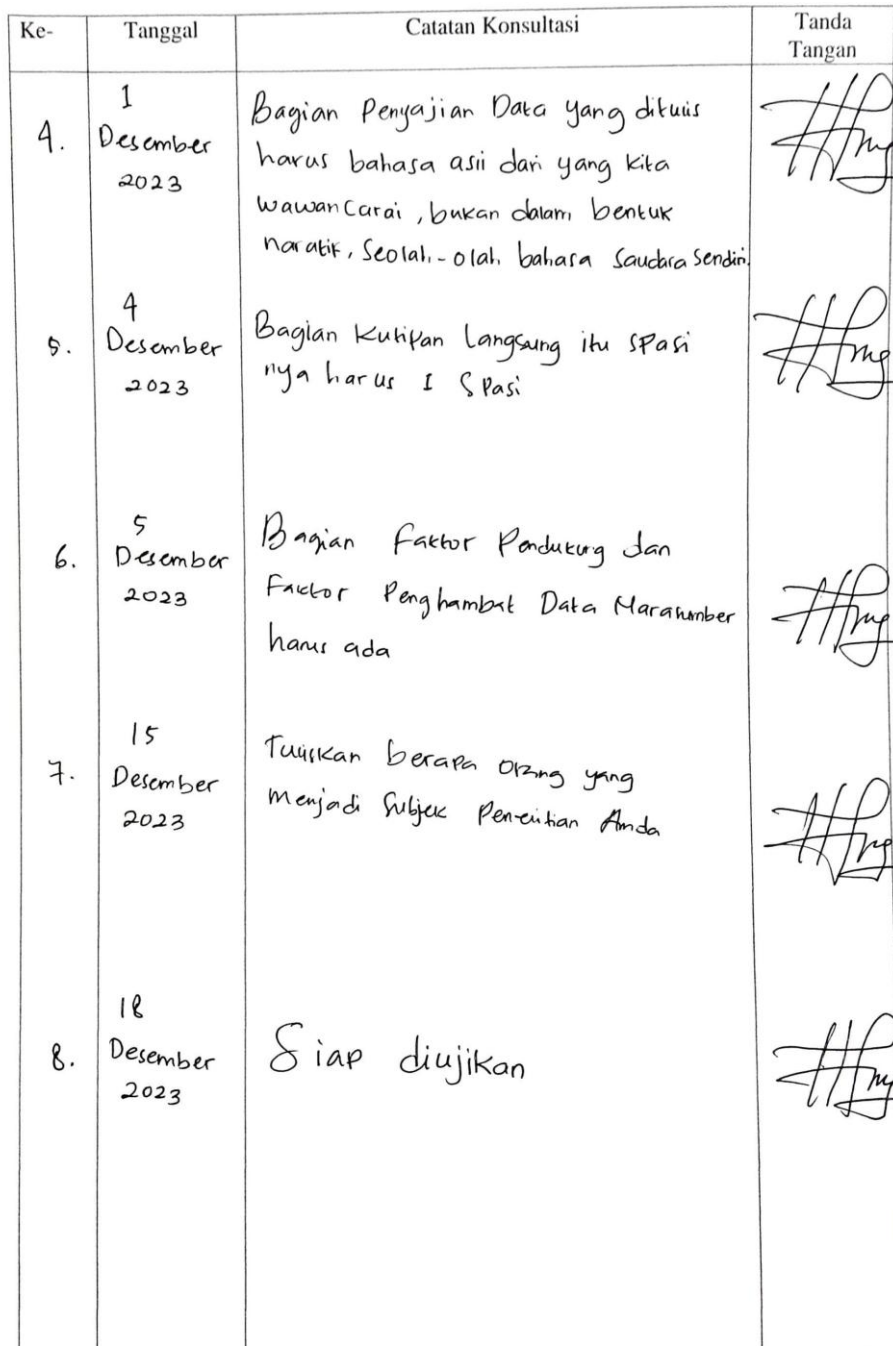 Ke-
Tanggal
Catatan Konsultasi
Tanda
Tangan
4.
1
Desember
2023
Bagian Penyajian Data yang ditulis
harus bahasa asli dari yang kita
wawancarai, bukan dalam bentuk
naratif, Seolah-olah bahasa Saudara Sendiri.
5.
4
Desember
2023
Bagian Kutipan Langsung itu Spasi
nya harus 1 Spasi
6.
5
Desember
2023
Bagian Faktor Pendukung dan
Faktor Penghambat Data Narasumber
harus ada
7.
15
Desember
2023
Tuliskan berapa orang yang
Menjadi Subjek Penelitian Anda
8.
18
Desember
2023
Siap diujikan